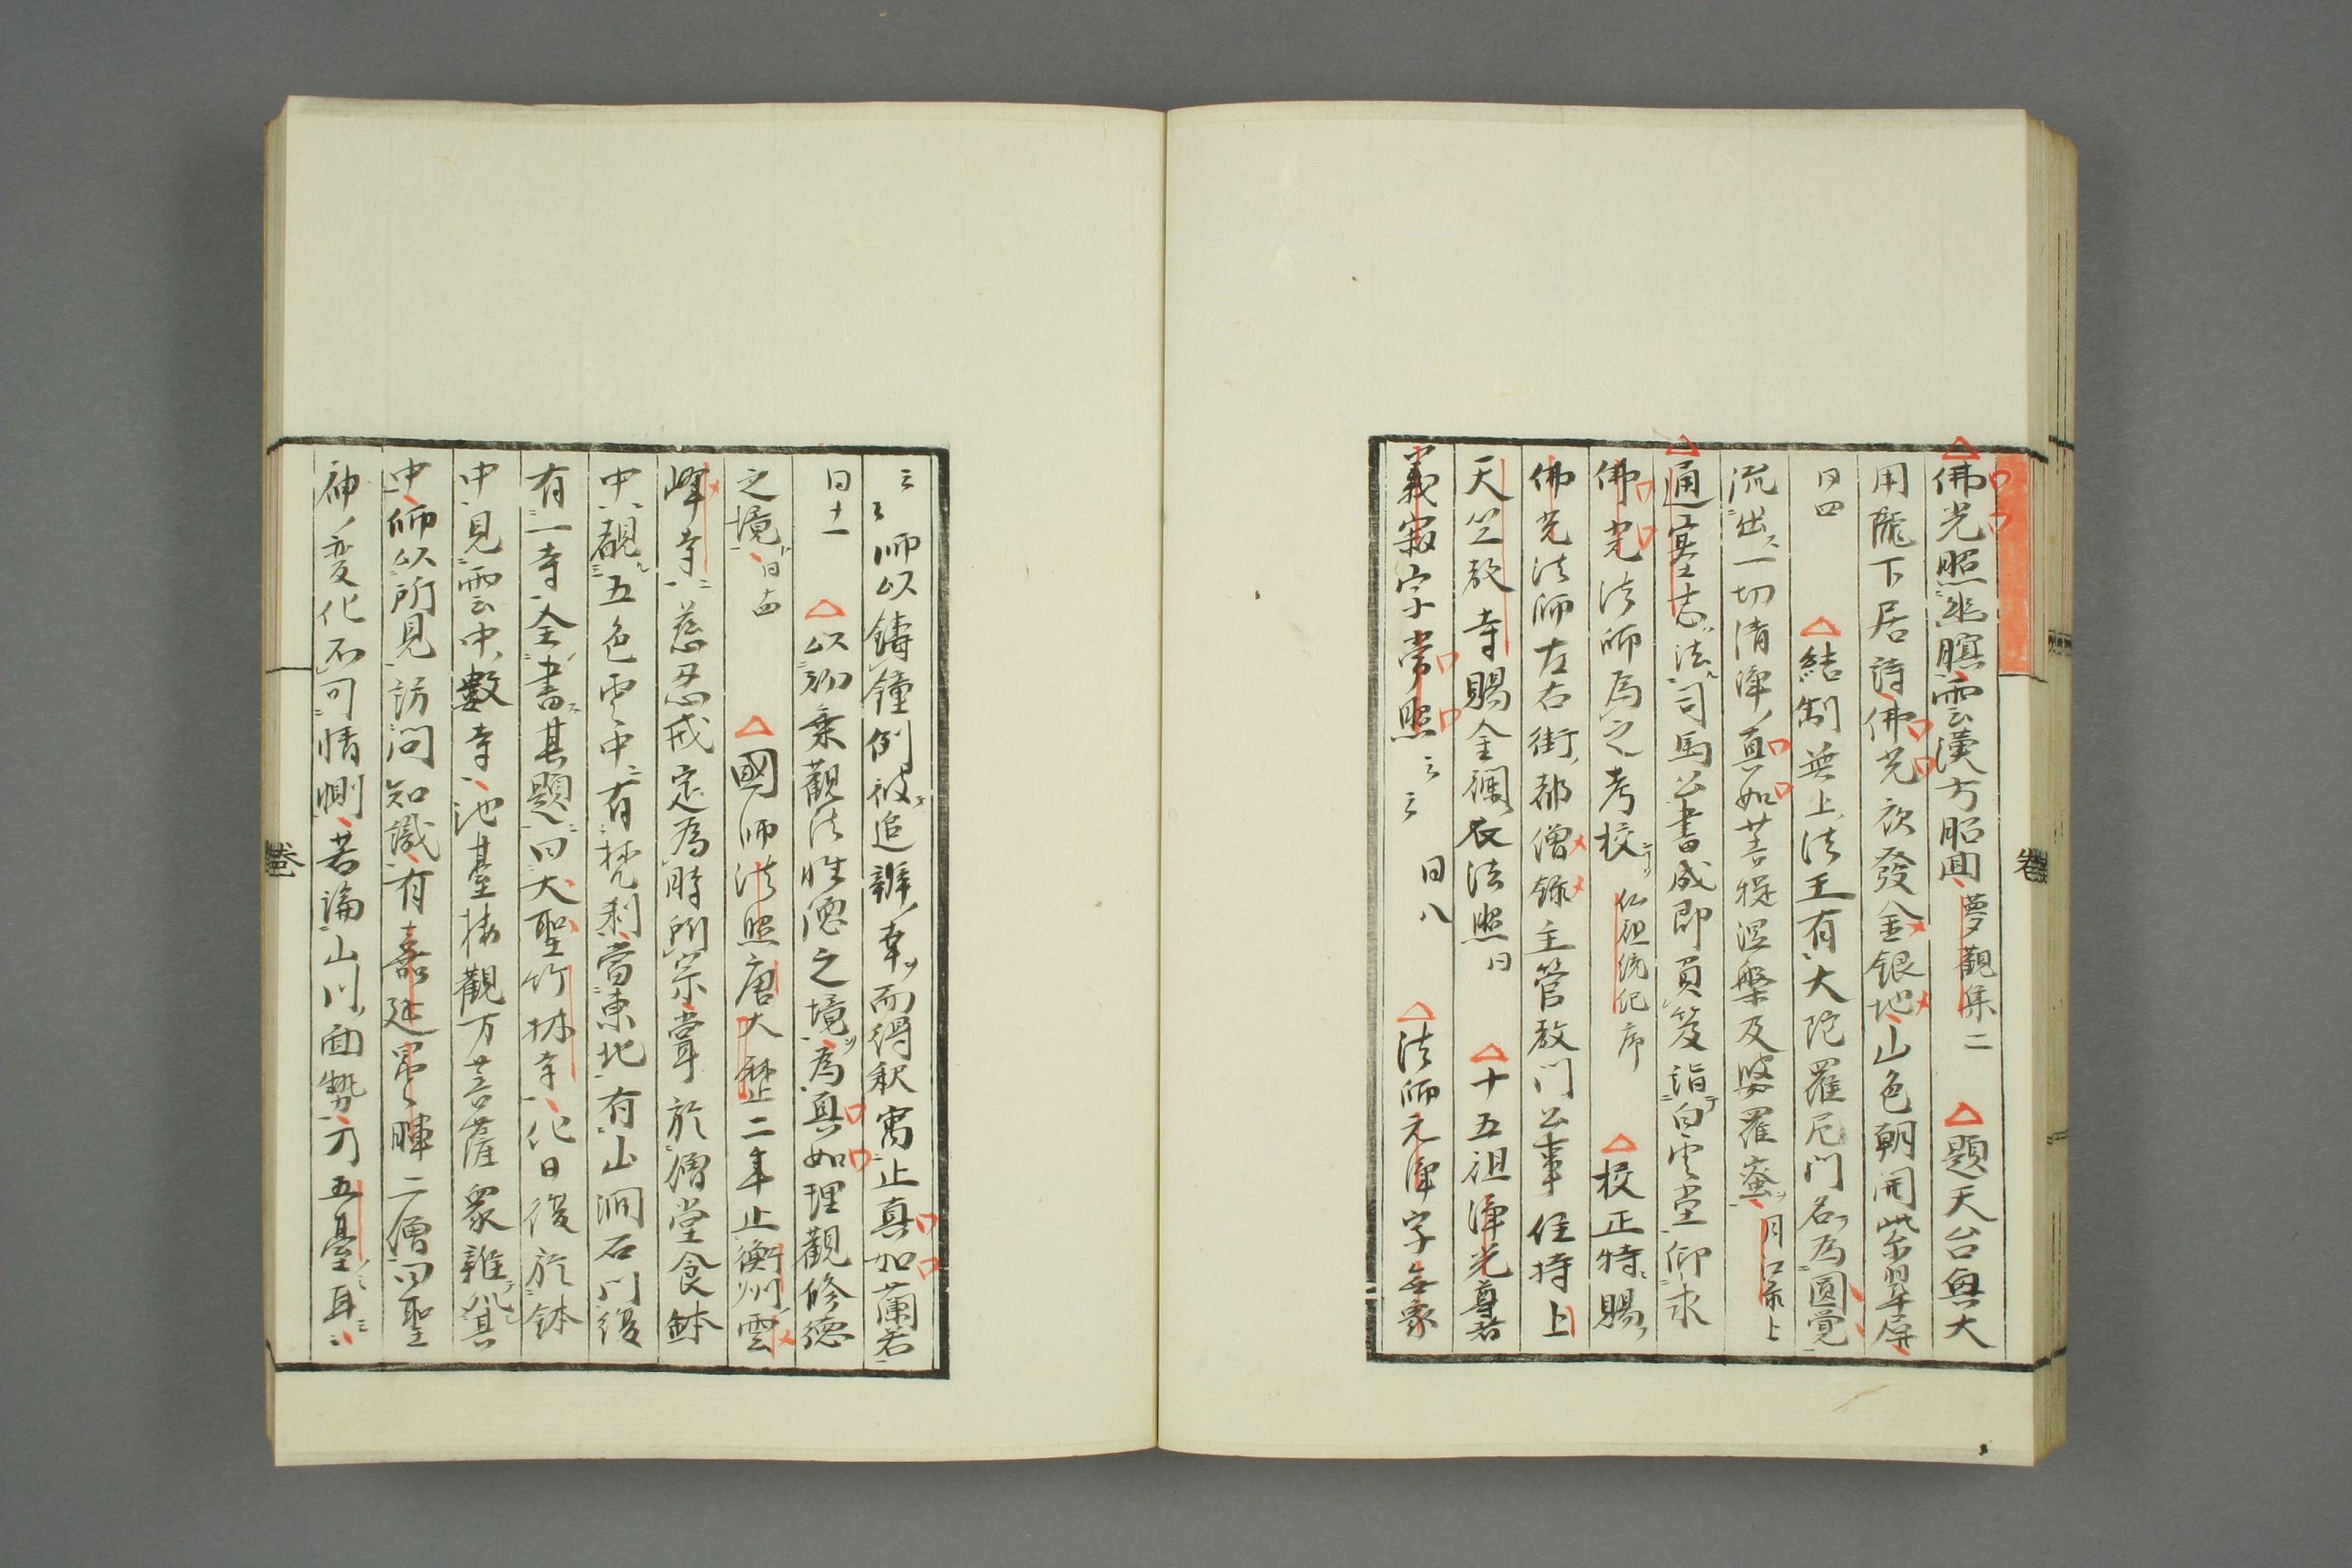 佛光照幽瞑雲漢方昭囬夢觀集二 題天台與大
用龐下居詩佛光夜發金銀地山色朝開紫翠屏
同四 結制無上法王有大陀羅尼門名為圓覺
流出一切清淨真如菩提涅槃及婆羅蜜月江录上
通塞志法司馬公書成即負笈詣白雲堂仰求
佛光法師為之考校仏祖統纪序 校正特賜
佛光法師左右街都僧録主管教門公事住持上
天竺教寺賜金襴衣法照同 十五祖淨光尊者
義寂字常照云云 同八 法師元淨字無象
云云師以鑄鐘例被追辨幸而得釈寓止真如蘭若
同十一 以初乗觀法性德之境為真如理觀修德
之境同十四 國師法照唐大歷二年止衡州雲
峰寺慈忍戒定為時所宗嘗於僧堂食鉢
中覩五色雲中有梵刹當東北有山澗石門復
有一寺金書其題曰大聖竹林寺他日復於鉢
中見雲中數寺池臺樓觀万菩薩衆雜處其
中師以所見訪問知識有嘉延曇暉二僧曰聖
神変化不可情測若論山川面勢乃五臺耳
卷
卷